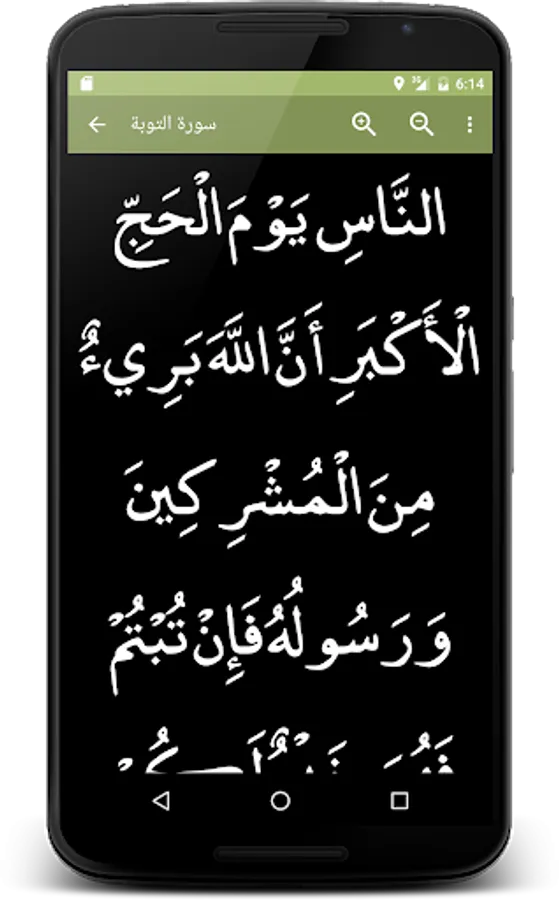 6:14
سورة التوبة
النَّاسِ يَوْمَ الْحَجِّ
الْأَكْبَرِ أَنَّ اللَّهَ بَرِيءٌ
مِنَ الْمُشْرِكِينَ
وَرَسُولُهُ فَإِنْ تُبْتُمْ